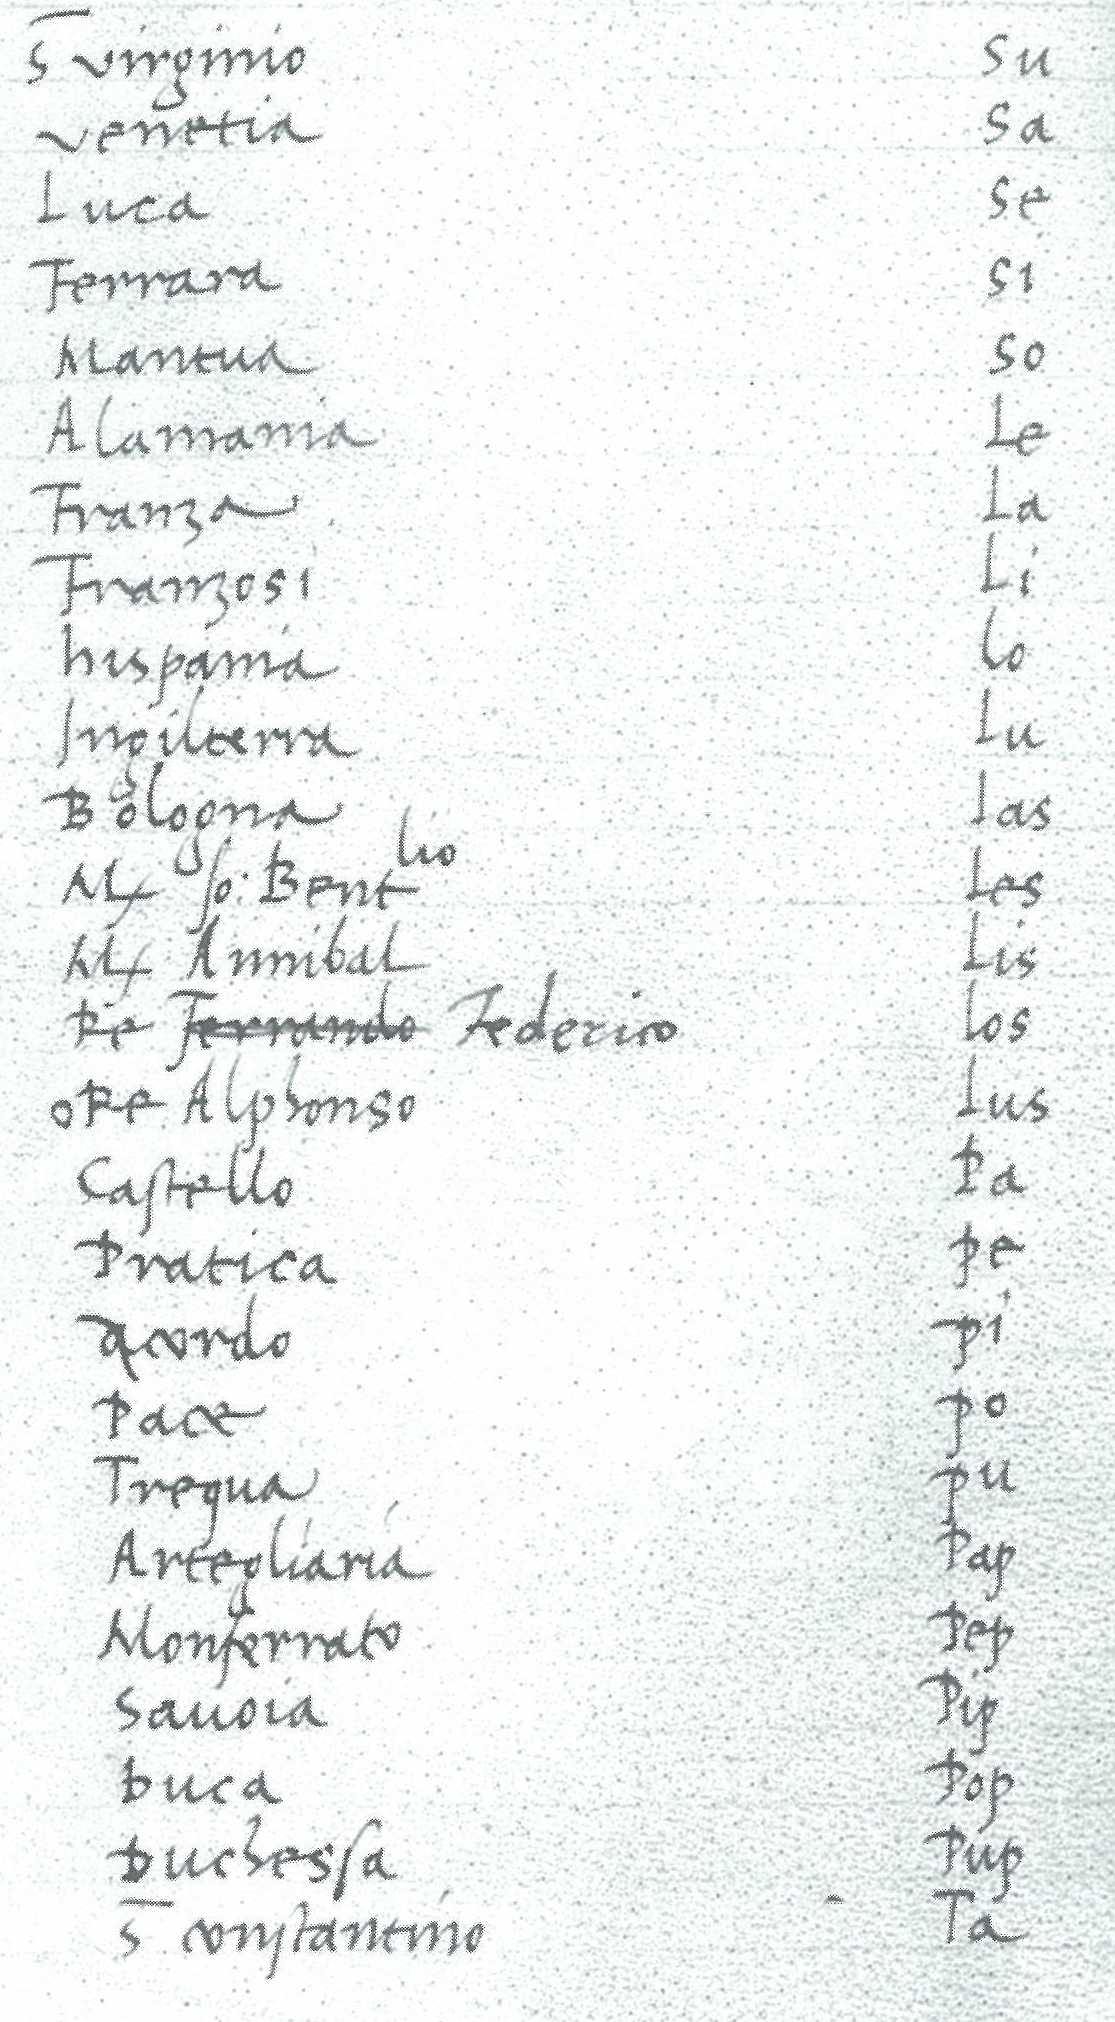 S virginio Su
venetia Sa
Luca Se
Ferrara Si
Mantua So
Alamania Le
Franza La
Franzosi Li
hispania lo
Ingilterra Lu
Bologna las
Mx Jo: Bentlio Les
Mx Annibal Lis
Re Ferrando Federico los
o Re Alphonso Lus
Castello Pa
Pratica pe
acordo pi
Pace po
Tregua pu
Artegliaria Pap
Monferrato Pep
Sauoia Pip
Duca Pop
Duchessa Pup
S constantino Ta